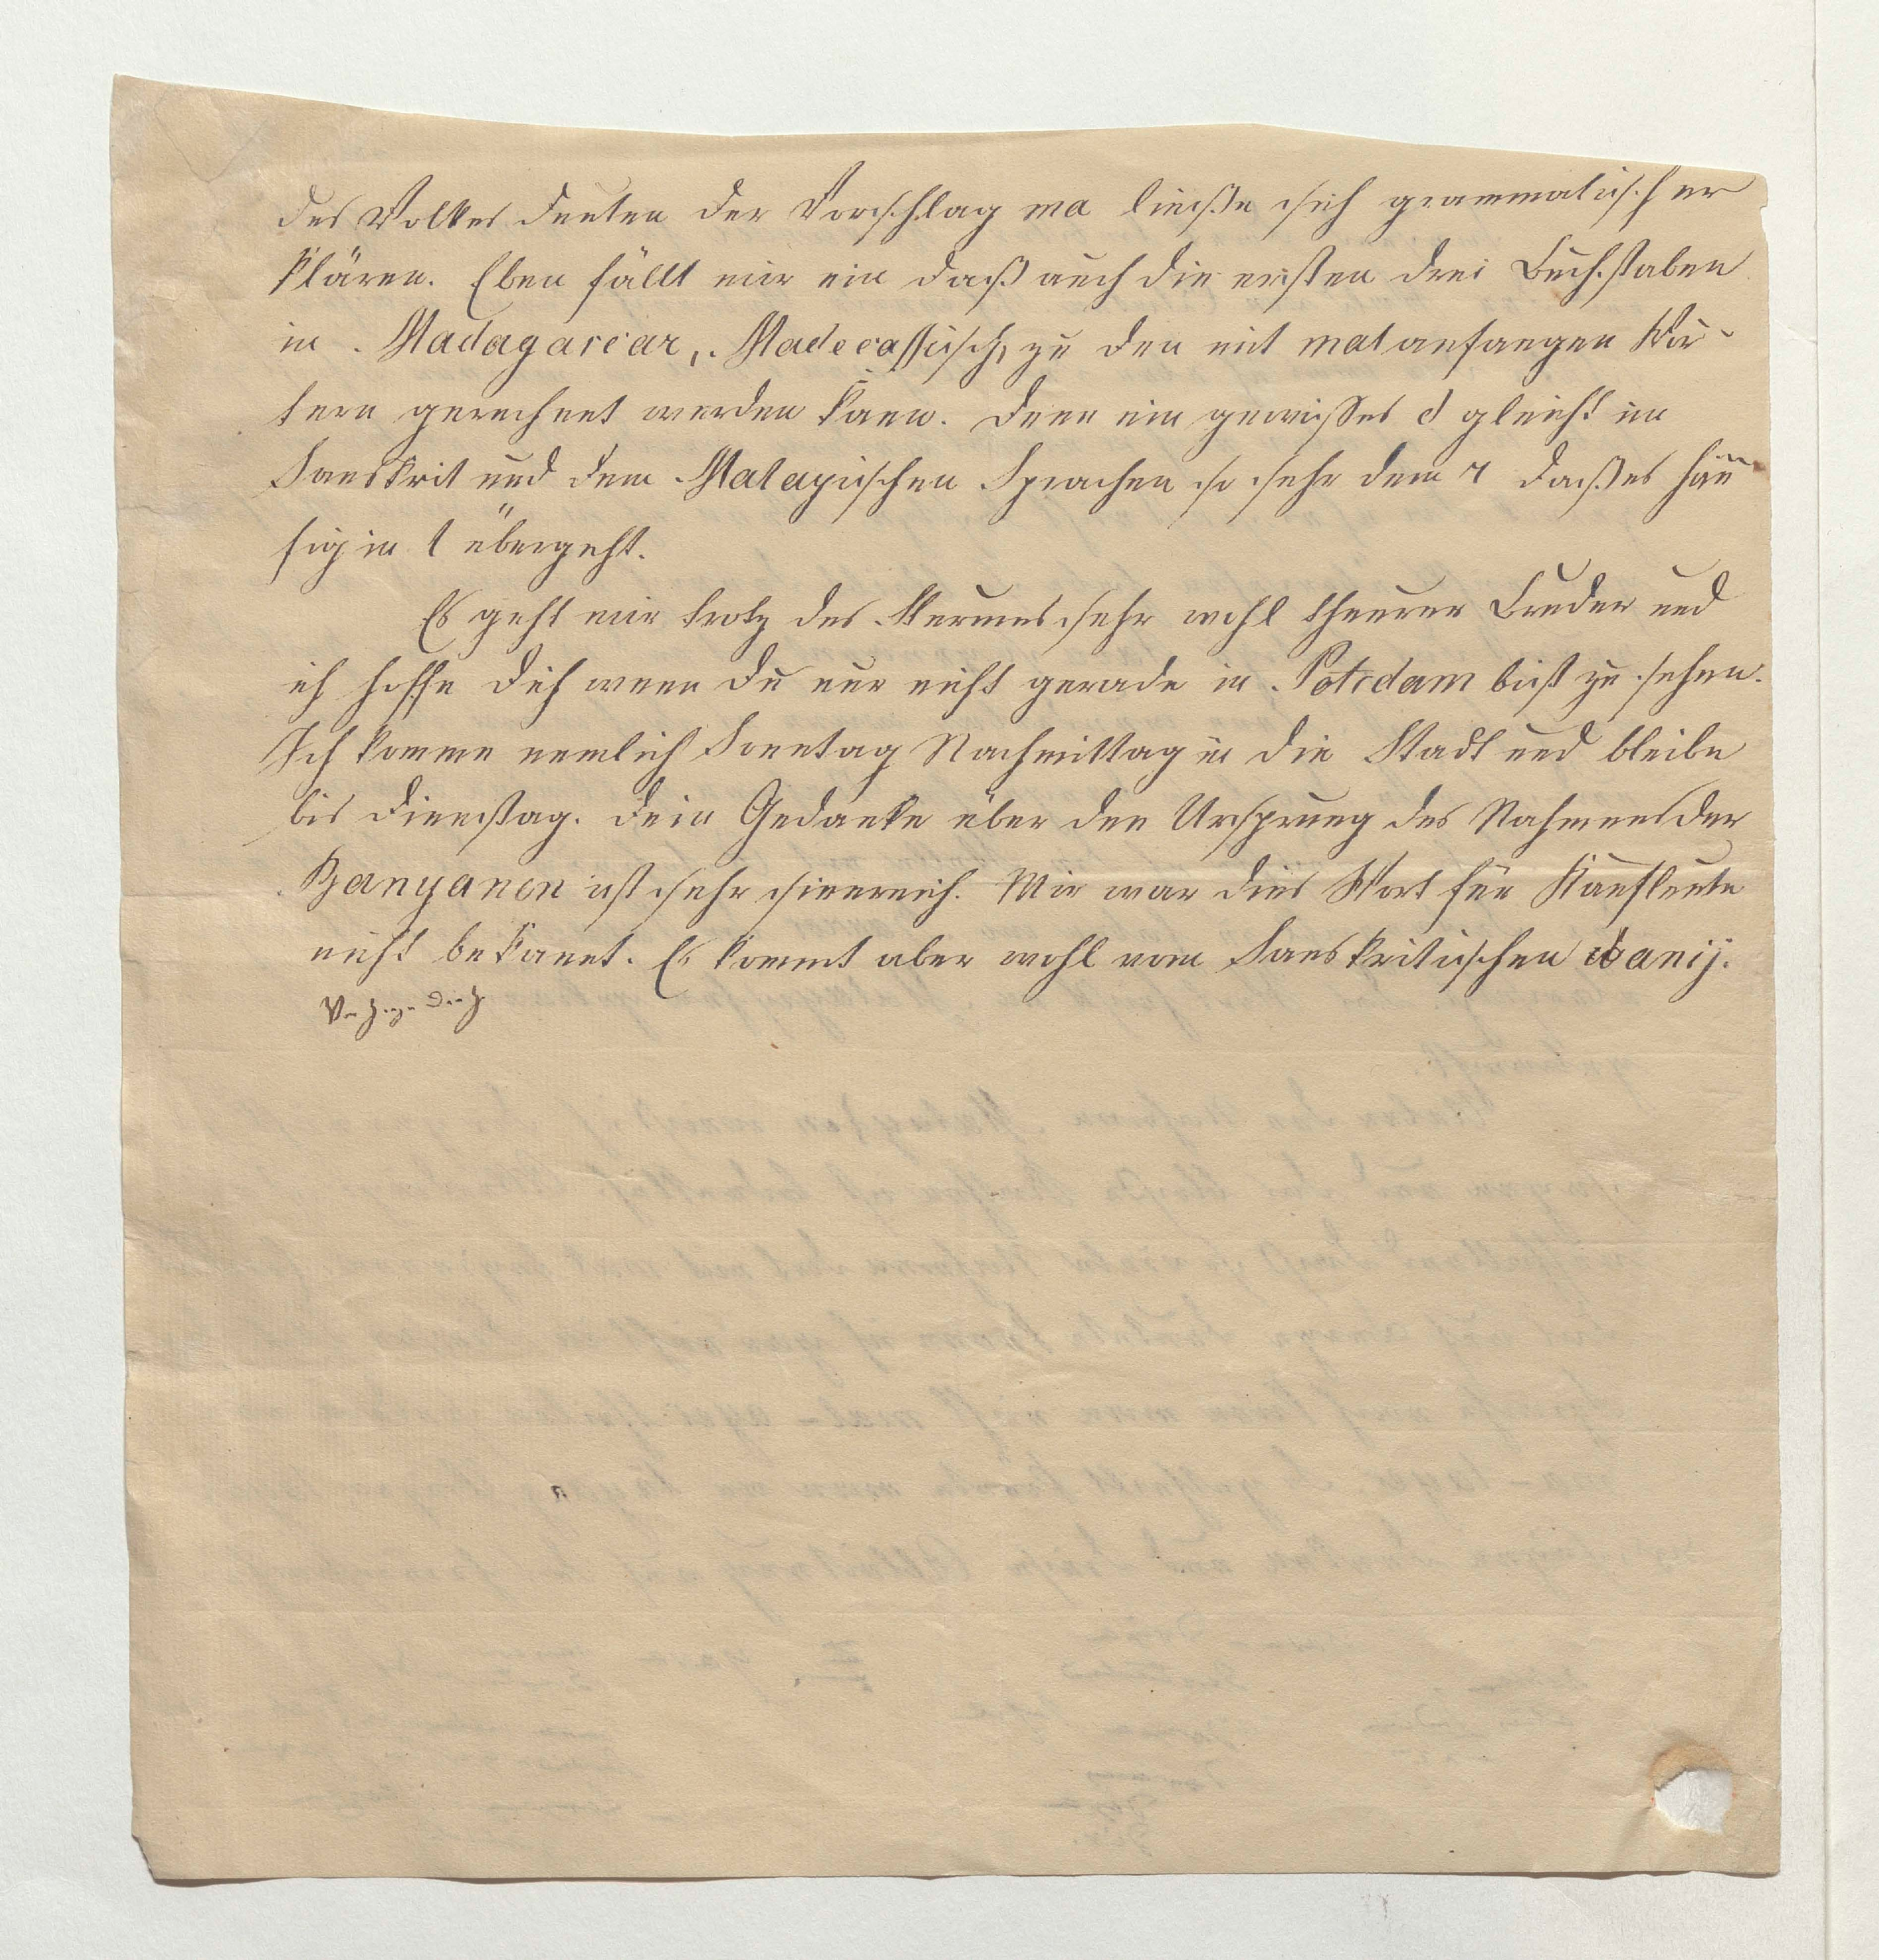 des Volkes deuten der Vorschlag ma ließe sich grammatisch er
klären. Eben fällt mir ein daß auch die ersten drei Buchstaben
in Madagascar, Madecassisch, zu den mit mal anfangen Wör-
tern gerechnet werden kann. Denn ein gewisses d gleicht im
Sanskrit und dem Malayischen Sprachen so sehr dem r daß es häu
fig in l übergeht.
Es geht mir trotz des Sturmes sehr wohl theurer Bruder und
ich hoffe Dich wenn Du nur nicht gerade in Potsdam bist zu sehen.
Ich komme nemlich Sonntag Nachmittag in die Stadt und bleibe
bis Dienstag. Dein Gedanke über den Ursprung des Nahmens der
Banyanen ist sehr sinnreich. Mir war dies Wort für Kaufleute
nicht bekannt. Es kommt aber wohl vom Sanskritischen banij.